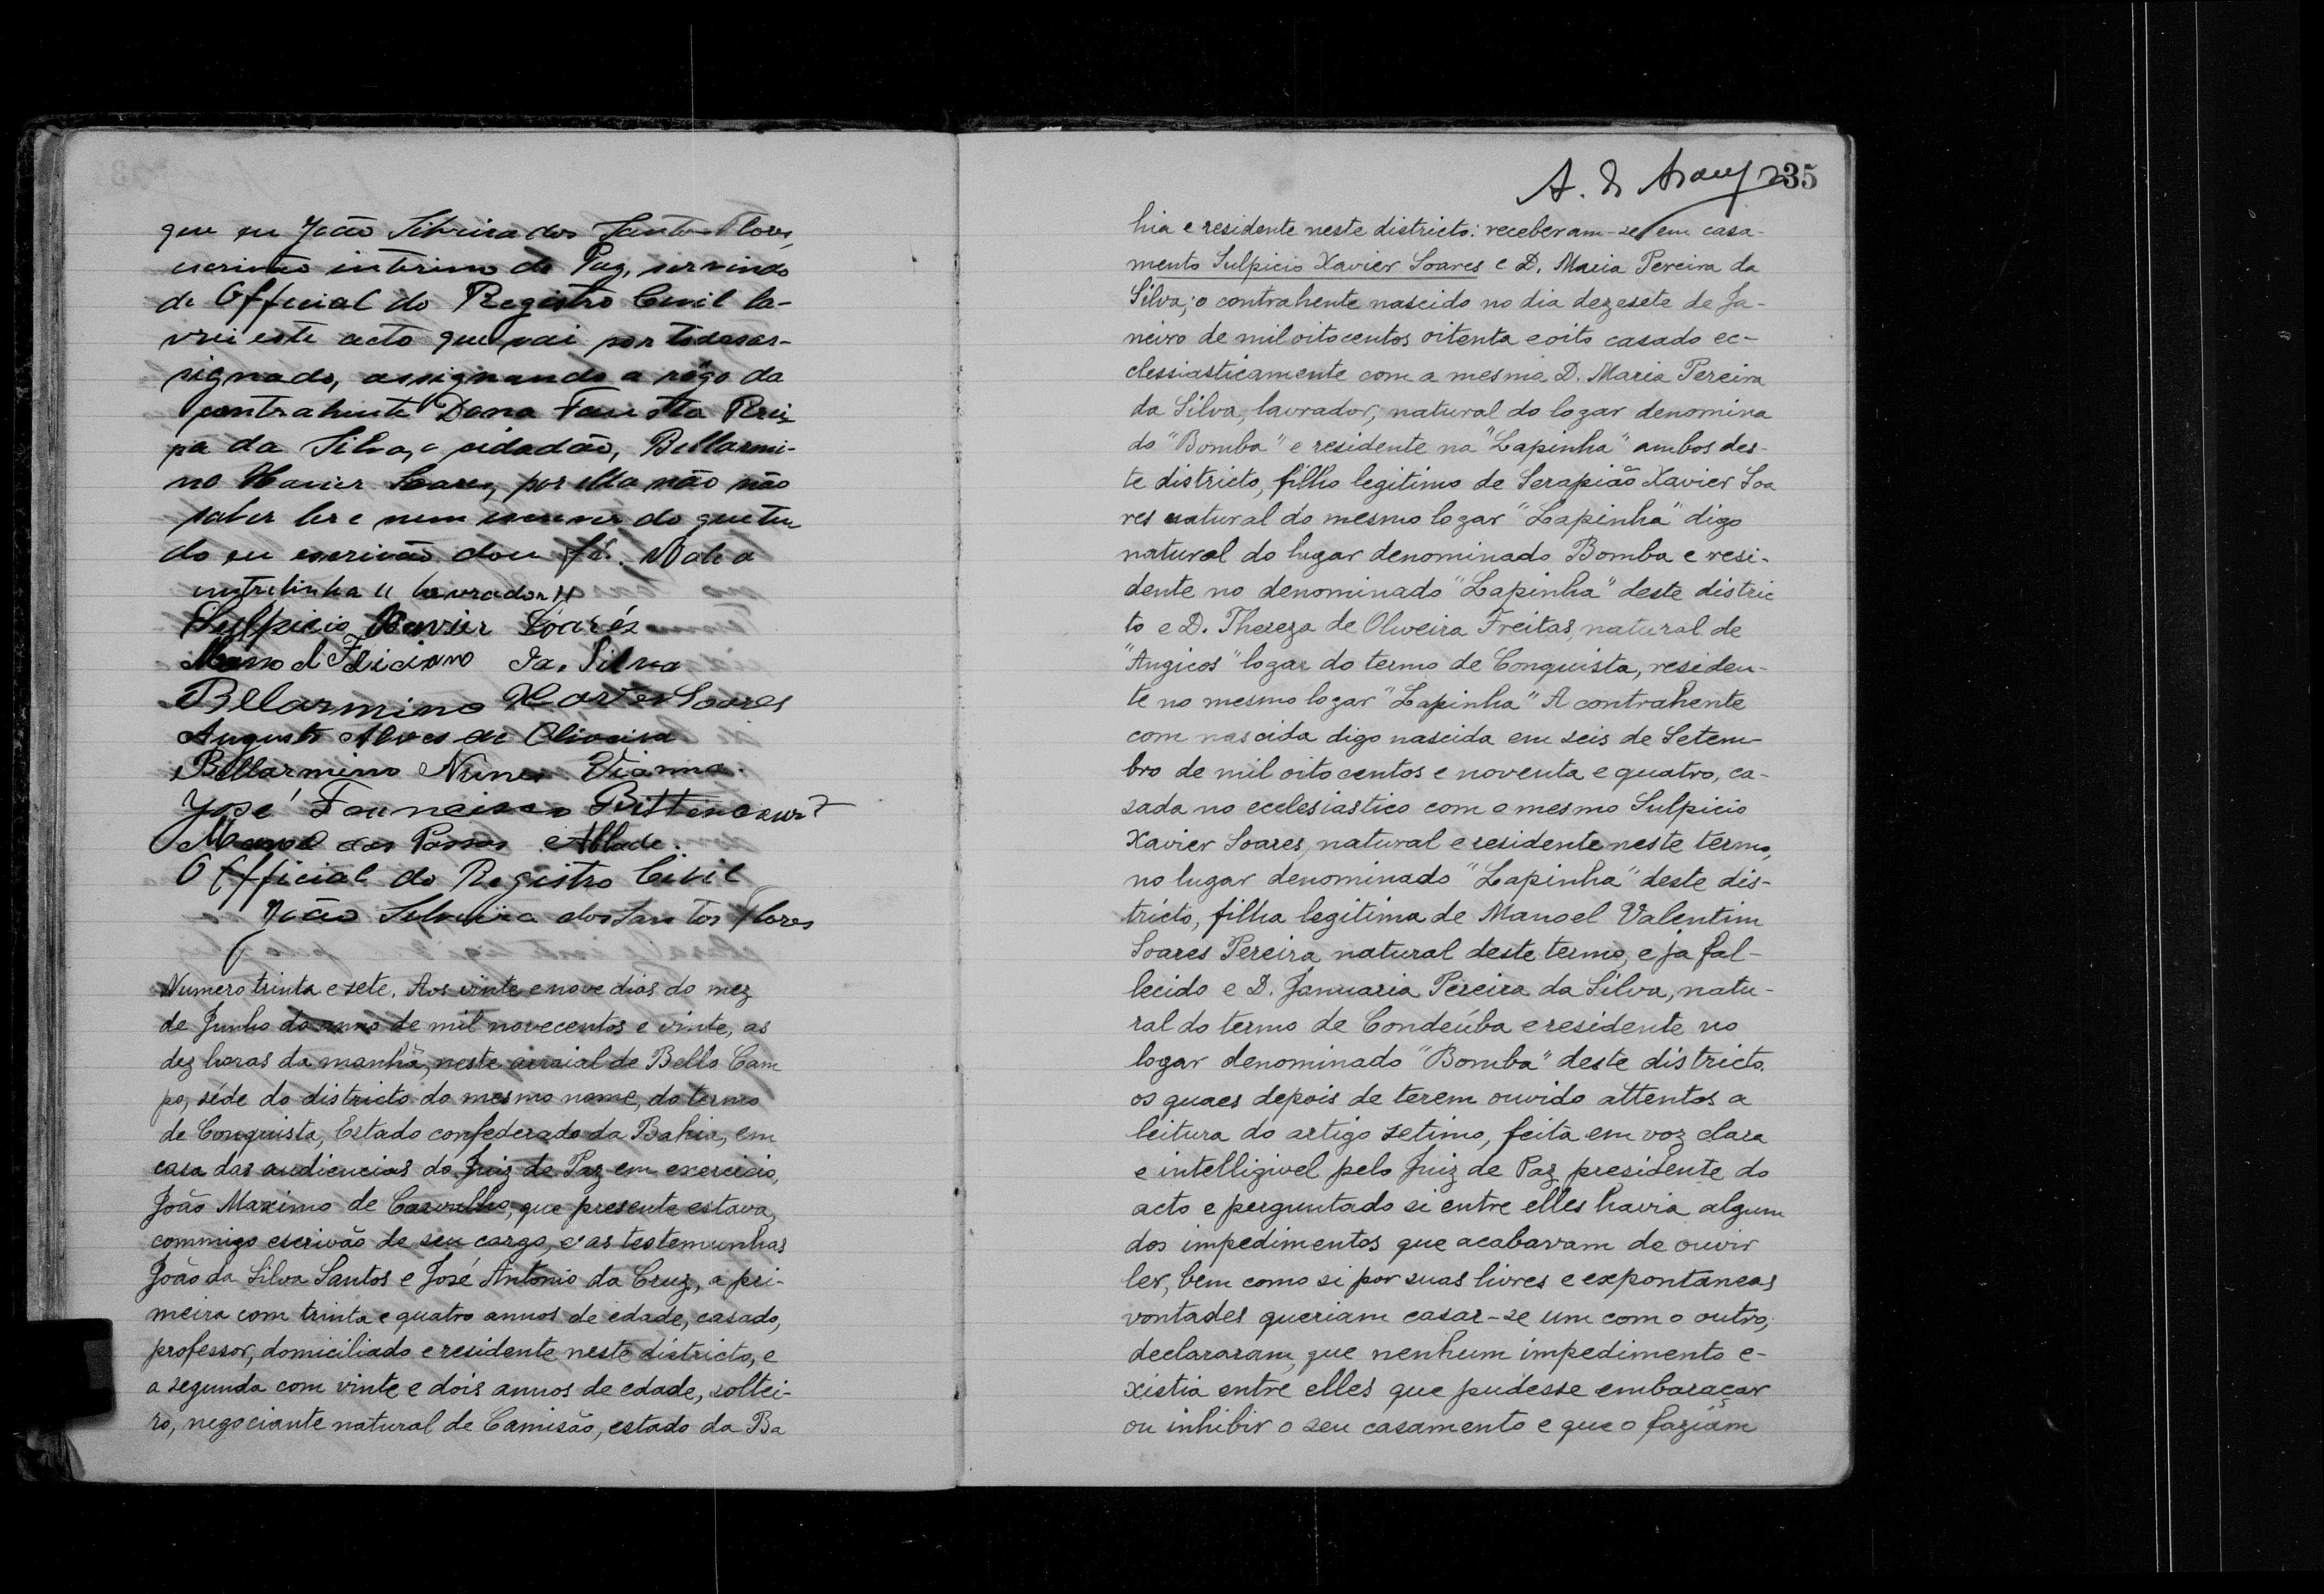 que eu João Silveira dos Santos Flores,
escrivão interino de Paz, servindo
de Official do Registro Civil la-
vrei este acto que vai por todos as-
signado, assignando a rôgo da
contrahente Dona Fausta Perei-
ra da Silva, o cidadão, Bellarmi-
no Xavier Soares, por ella não não
saber ler e nem escrever do que tu-
do eu escrivão dou fé. Vale a
entrelinha "lavrador"
Sulpicio Xavier Soares
Manoel Feliciano da Silva
Bellarmino Xavier Soares
Augusto Alves de Oliveira
Bellarmino Nunes Vianna.
José Francisco Bittencourt
Manoel dos Passos
O Official do Registro Civil
João Silveira dos Santos Flores
Numero trinta e sete. Aos vinte e nove dias do mez
de Junho do anno de mil novecentos e vinte, as
dez horas da manhã, neste arraial de Bello Cam
po, séde do districto do mesmo nome, do termo
de Conquista, Estado confederado da Bahia, em
casa das audiencias do Juiz de Paz em exercicio,
João Maximo de Carvalho, que presente estava,
commigo escrivão de seu cargo, e as testemunhas
João da Silva Santos e José Antonio da Cruz, a pri-
meira com trinta e quatro annos de edade, casado,
professor, domiciliado e residente neste districto, e
a segunda com vinte e dois annos de edade, soltei-
ro, negociante natural de Camisão, estado da Ba
A. de Araujo 235
hia e residente neste districto: receberam-se em casa-
mento Sulpicio Xavier Soares e D. Maria Pereira da
Silva; o contrahente nascido no dia dezesete de Ja-
neiro de mil oitocentos oitenta e oito casado ec-
clessiasticamente com a mesma D. Maria Pereira
da Silva, lavrador, natural do logar denomina
do "Bomba" e residente na "Lapinha" ambos des-
te districto, filho legitimo de Serapião Xavier Soa
res natural do mesmo logar "Lapinha" digo
natural do lugar denominado Bomba e resi-
dente no denominado "Lapinha" deste distric
to e D. Thereza de Oliveira Freitas, natural de
"Angicos" logar do termo de Conquista, residen-
te no mesmo logar "Lapinha" A contrahente
com nascida digo nascida em seis de Setem-
bro de mil oito centos e noventa e quatro, ca-
sada no ecclesiastico com o mesmo Sulpicio
Xavier Soares, natural e residente neste termo,
no lugar denominado "Lapinha" deste dis-
tricto, filha legitima de Manoel Valentim
Soares Pereira natural deste termo, e ja fal-
lecido e D. Januaria Pereira da Silva, natu-
ral do termo de Condeúba e residente no
logar denominado "Bomba" deste districto.
os quaes depois de terem ouvido attentos a
leitura do artigo setimo, feita em voz clara
e intelligivel pelo Juiz de Paz presidente do
acto e perguntado si entre elles havia algum
dos impedimentos que acabavam de ouvir
ler, bem como si por suas livres e expontaneas
vontades queriam casar-se um com o outro,
declararam, que nenhum impedimento e-
xistia entre elles que pudesse embaraçar
ou inhibir o seu casamento e que o faziam